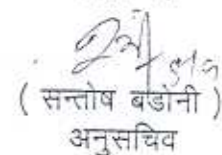 ( सन्तोष बडोनी )
अनुसचिव